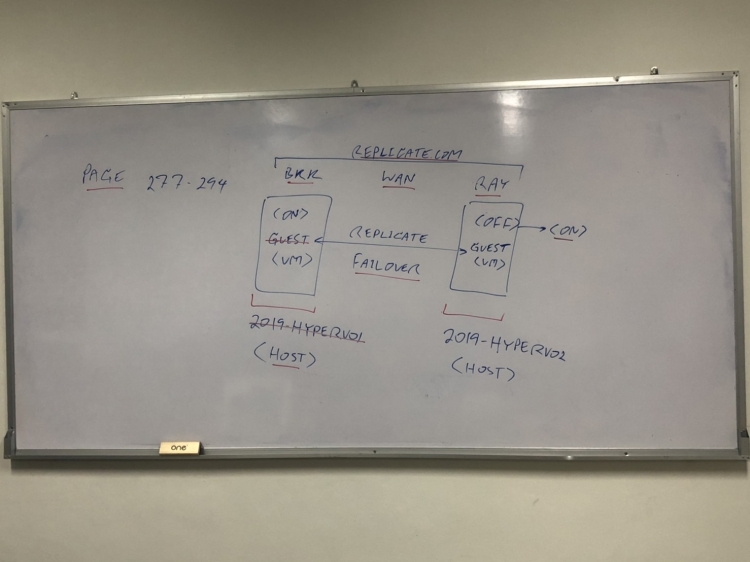 REPLICATE.COM
PAGE 277-294
BKK WAN RAY
<ON>
GUEST
<VM>
REPLICATE
FAILOVER
<OFF>
GUEST
<VM>
<ON>
2019-HYPERV01
(HOST)
2019-HYPERV02
(HOST)
one